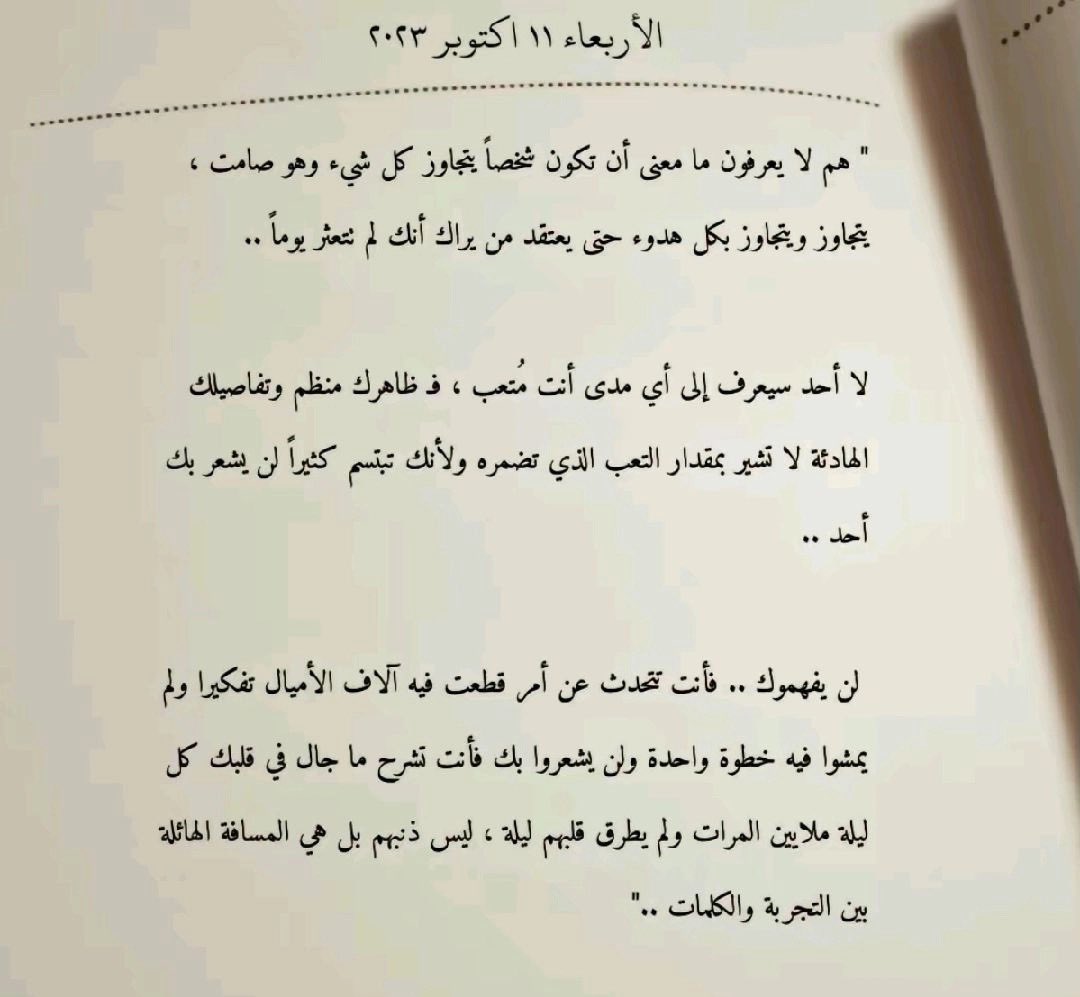 الأربعاء ١١ اكتوبر ٢٠٢٣
" هم لا يعرفون ما معنى أن تكون شخصاً يتجاوز كل شيء وهو صامت ،
يتجاوز ويتجاوز بكل هدوء حتى يعتقد من يراك أنك لم تتعثر يوماً ..
لا أحد سيعرف إلى أي مدى أنت مُتعب ، فـ ظاهرك منظم وتفاصيلك
الهادئة لا تشير بمقدار التعب الذي تضمره ولأنك تبتسم كثيراً لن يشعر بك
أحد ..
لن يفهموك .. فأنت تتحدث عن أمر قطعت فيه آلاف الأميال تفكيرا ولم
يمشوا فيه خطوة واحدة ولن يشعروا بك فأنت تشرح ما جال في قلبك كل
ليلة ملايين المرات ولم يطرق قلبهم ليلة ، ليس ذنبهم بل هي المسافة الهائلة
بين التجربة والكلمات .."